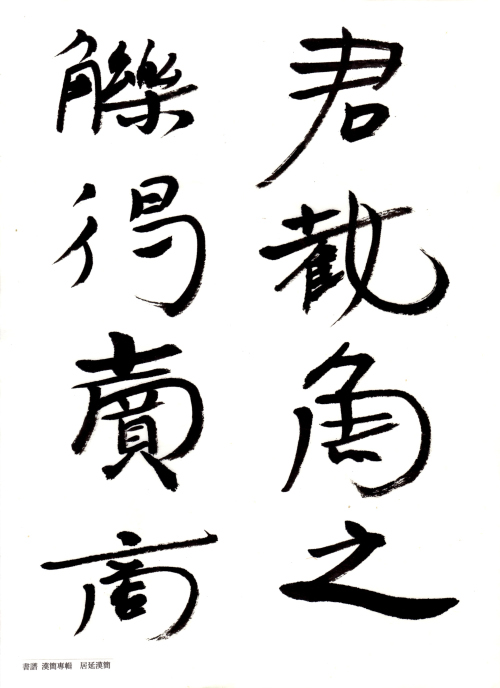 君之
觻得賣商
書譜 漢簡專輯 居延漢簡